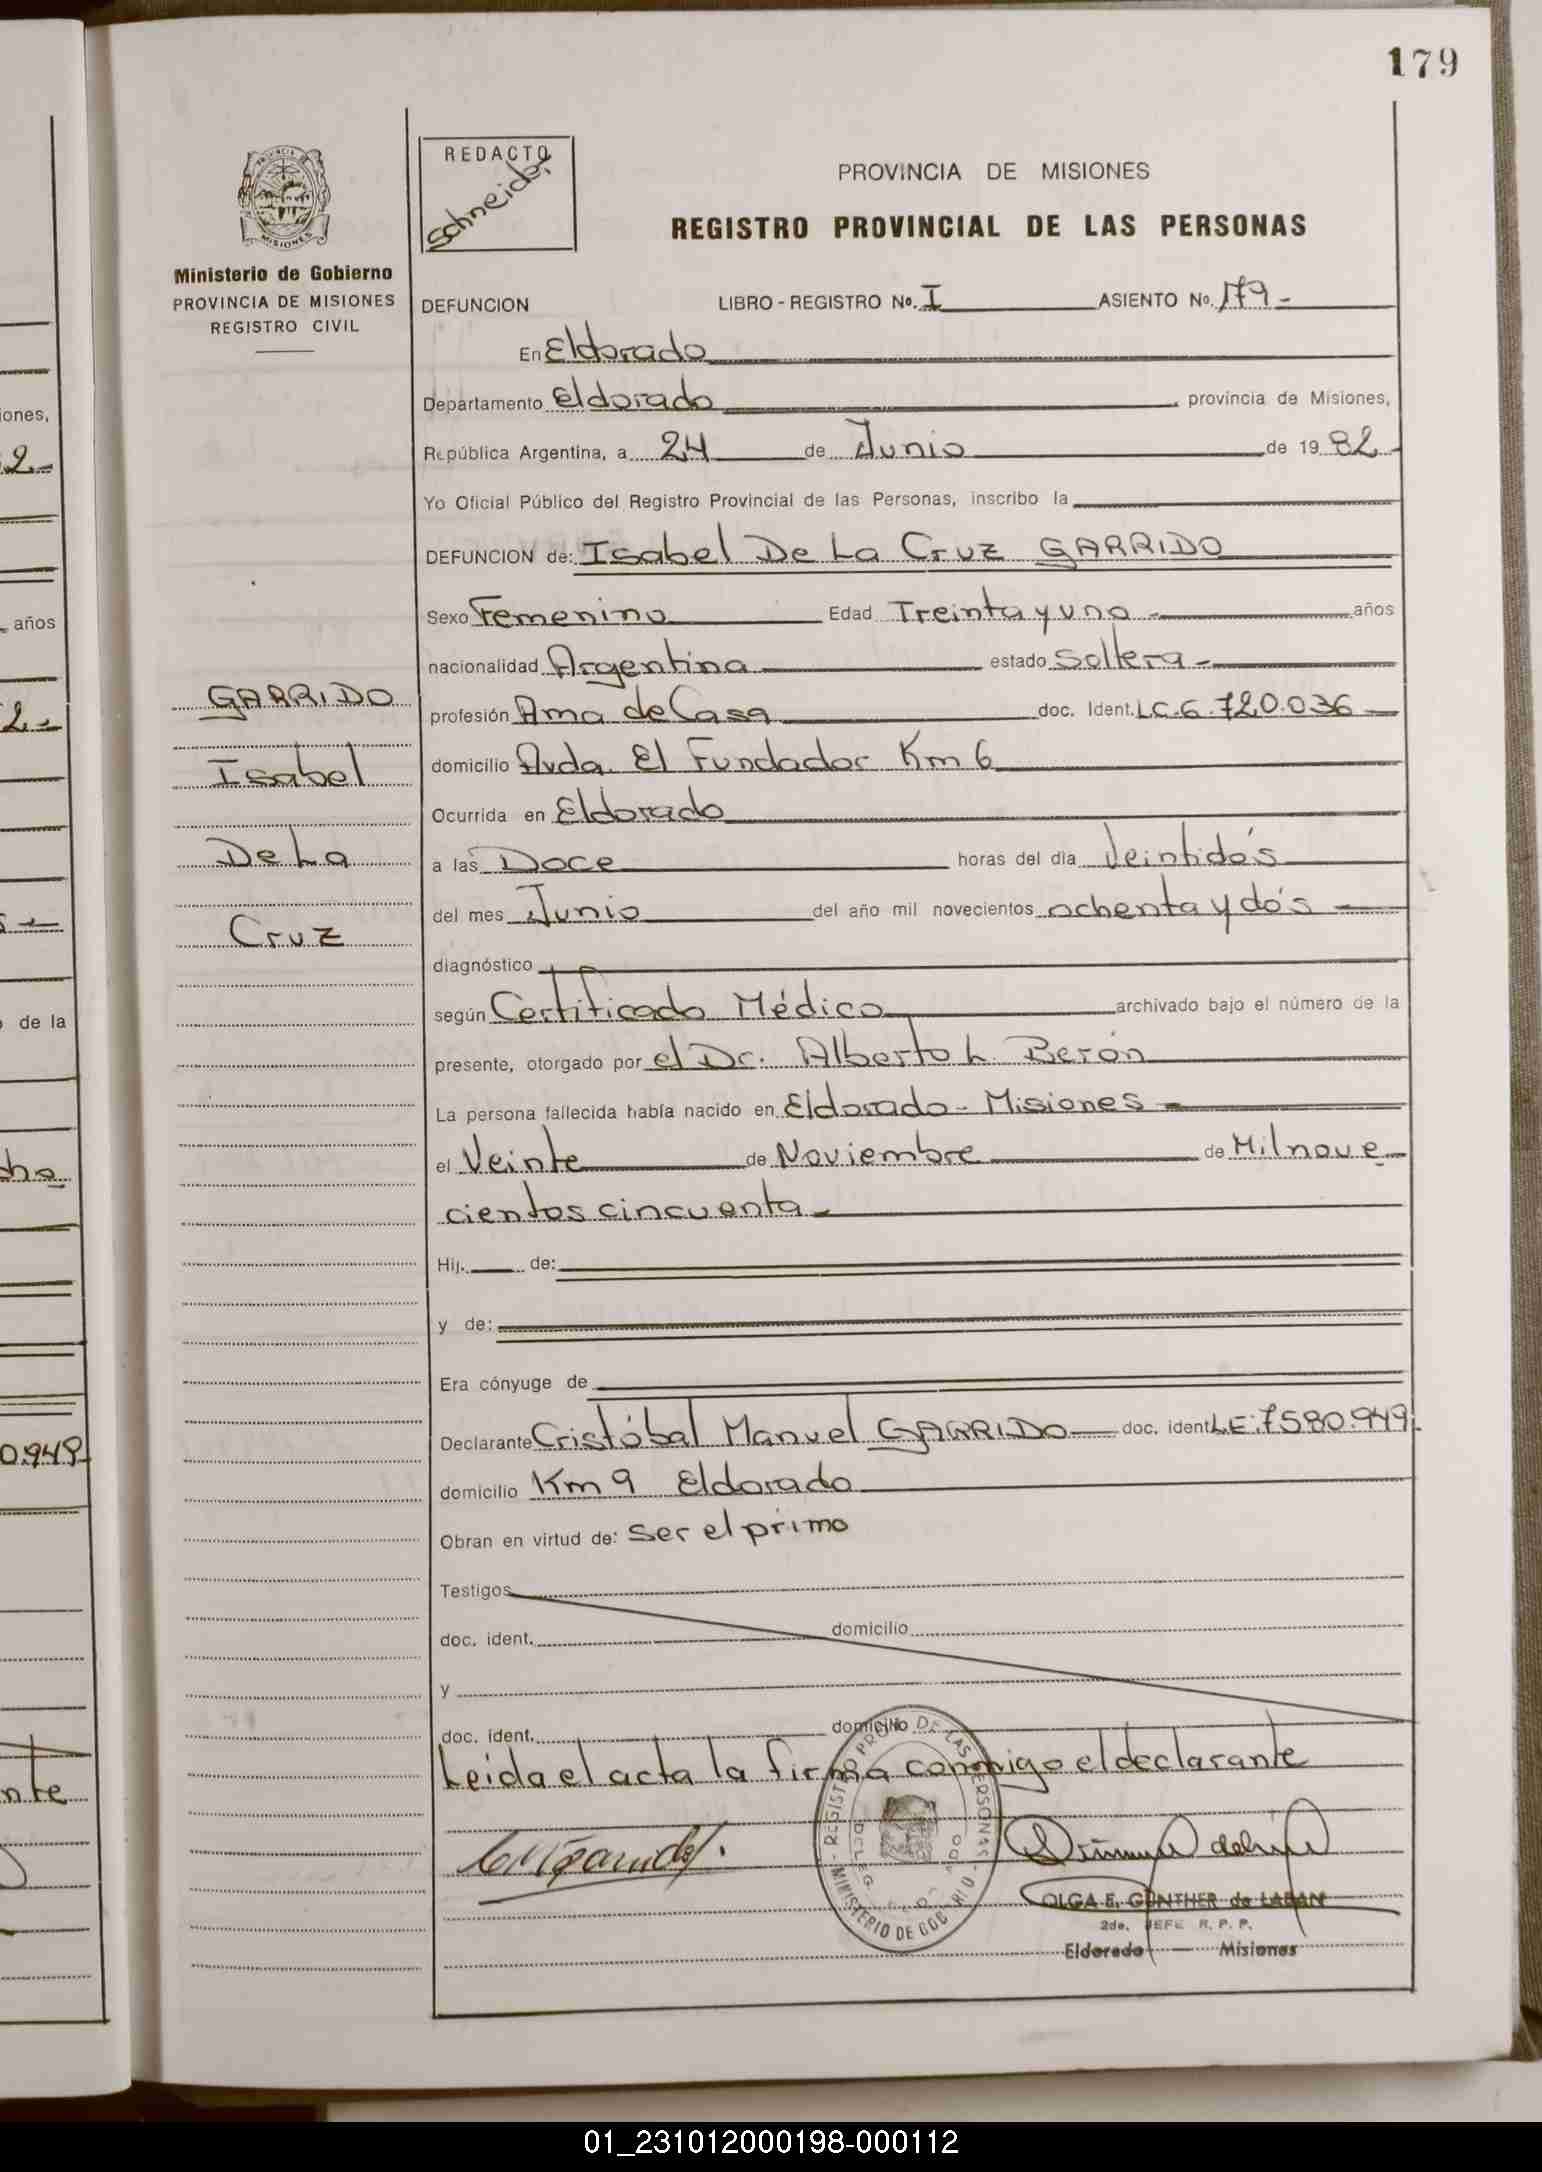 179
PROVINCIA DE
MISIONES
Ministerio de Gobierno
PROVINCIA DE MISIONES
REGISTRO CIVIL
GARRIDO
Isabel
De La
Cruz
REDACTO
Schneider
PROVINCIA DE MISIONES
REGISTRO PROVINCIAL DE LAS PERSONAS
DEFUNCION LIBRO - REGISTRO No. I ASIENTO No. 179 -
En Eldorado
Departamento Eldorado, provincia de Misiones,
República Argentina, a 24 de Junio de 19 82 -
Yo Oficial Público del Registro Provincial de las Personas, inscribo la
DEFUNCION de: Isabel De La Cruz GARRIDO
Sexo Femenino Edad Treinta y uno - años
nacionalidad Argentina estado Soltera -
profesión Ama de Casa doc. Ident. L.C. 6.720.036 -
domicilio Avda. El Fundador Km 6
Ocurrida en Eldorado
a las Doce horas del día Veintidós
del mes Junio del año mil novecientos ochenta y dós -
diagnóstico
según Certificado Médico archivado bajo el número de la
presente, otorgado por el Dr. Alberto L. Berón
La persona fallecida había nacido en Eldorado - Misiones -
el Veinte de Noviembre de Milnove
cientos cincuenta -
Hij. de:
y de:
Era cónyuge de
Declarante Cristóbal Manuel GARRIDO doc. ident. L.E: 7580.949 -
domicilio Km 9 Eldorado
Obran en virtud de: Ser el primo
Testigos
doc. ident. domicilio
y
doc. ident. domicilio
Leida el acta la firma conmigo el declarante
REGISTRO PROV. DE LAS PERSONAS
MINISTERIO DE GOBIERNO
OLGA E. GÜNTHER de LABAN
2do. JEFE R. P. P.
Eldorado - Misiones
iones,
2 -
años
2 -
de la
cho
0.949 -
nte
01_231012000198-000112